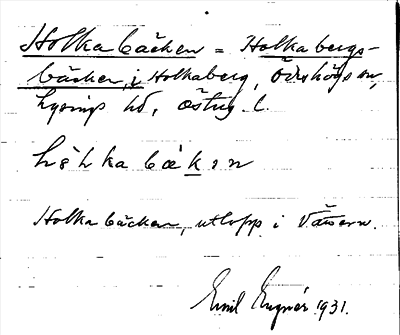 Holkabäcken = Holkabergs-
bäcken, i Holkaberg, Ödeshögs sn,
Lysings hd, Östrg. l.
hòlkabäkən
Holkabäcken, utlopp i Vättern.
Emil Engnér 1931.